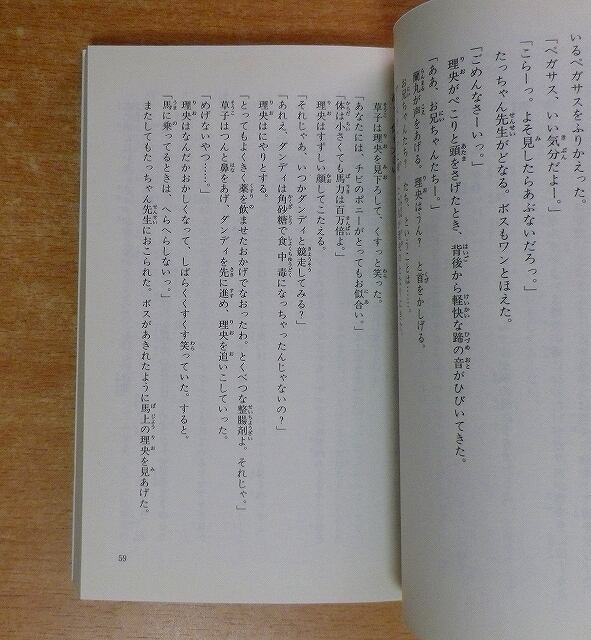 いるペガサスをふりかえった。
「ペガサス、いい気分だよー。」
「こらーっ。よそ見したらあぶないだろっ。」
たっちゃん先生がどなる。ボスもワンとほえた。
「ごめんなさーいっ。」
理央がぺこりと頭をさげたとき、背後から軽快な蹄の音がひびいてきた。
「ああ、お兄ちゃんたちー。」
蘭丸が声をあげる。理央はうん？　と首をかしげる。
草子は理央を見下ろして、くすっと笑った。
「あなたには、チビのポニーがとってもお似合い。」
「体は小さくても馬力は百万倍よ。」
理央はすずしい顔してこたえる。
「それじゃあ、いつかダンディと競走してみる？」
「あれえ、ダンディは角砂糖で食中毒になっちゃったんじゃないの？」
理央はにやりとする。
「とってもよくきく薬を飲ませたおかげでなおったわ。とくべつな整腸剤よ。それじゃ。」
草子はつんと鼻をあげ、ダンディを先に進め、理央を追いこしていった。
「めげないやつ……。」
理央はなんだかおかしくなって、しばらくくすくす笑っていた。すると。
「馬に乗ってるときは、へらへらしないっ。」
またしてもたっちゃん先生におこられた。ボスがあきれたように馬上の理央を見あげた。
59